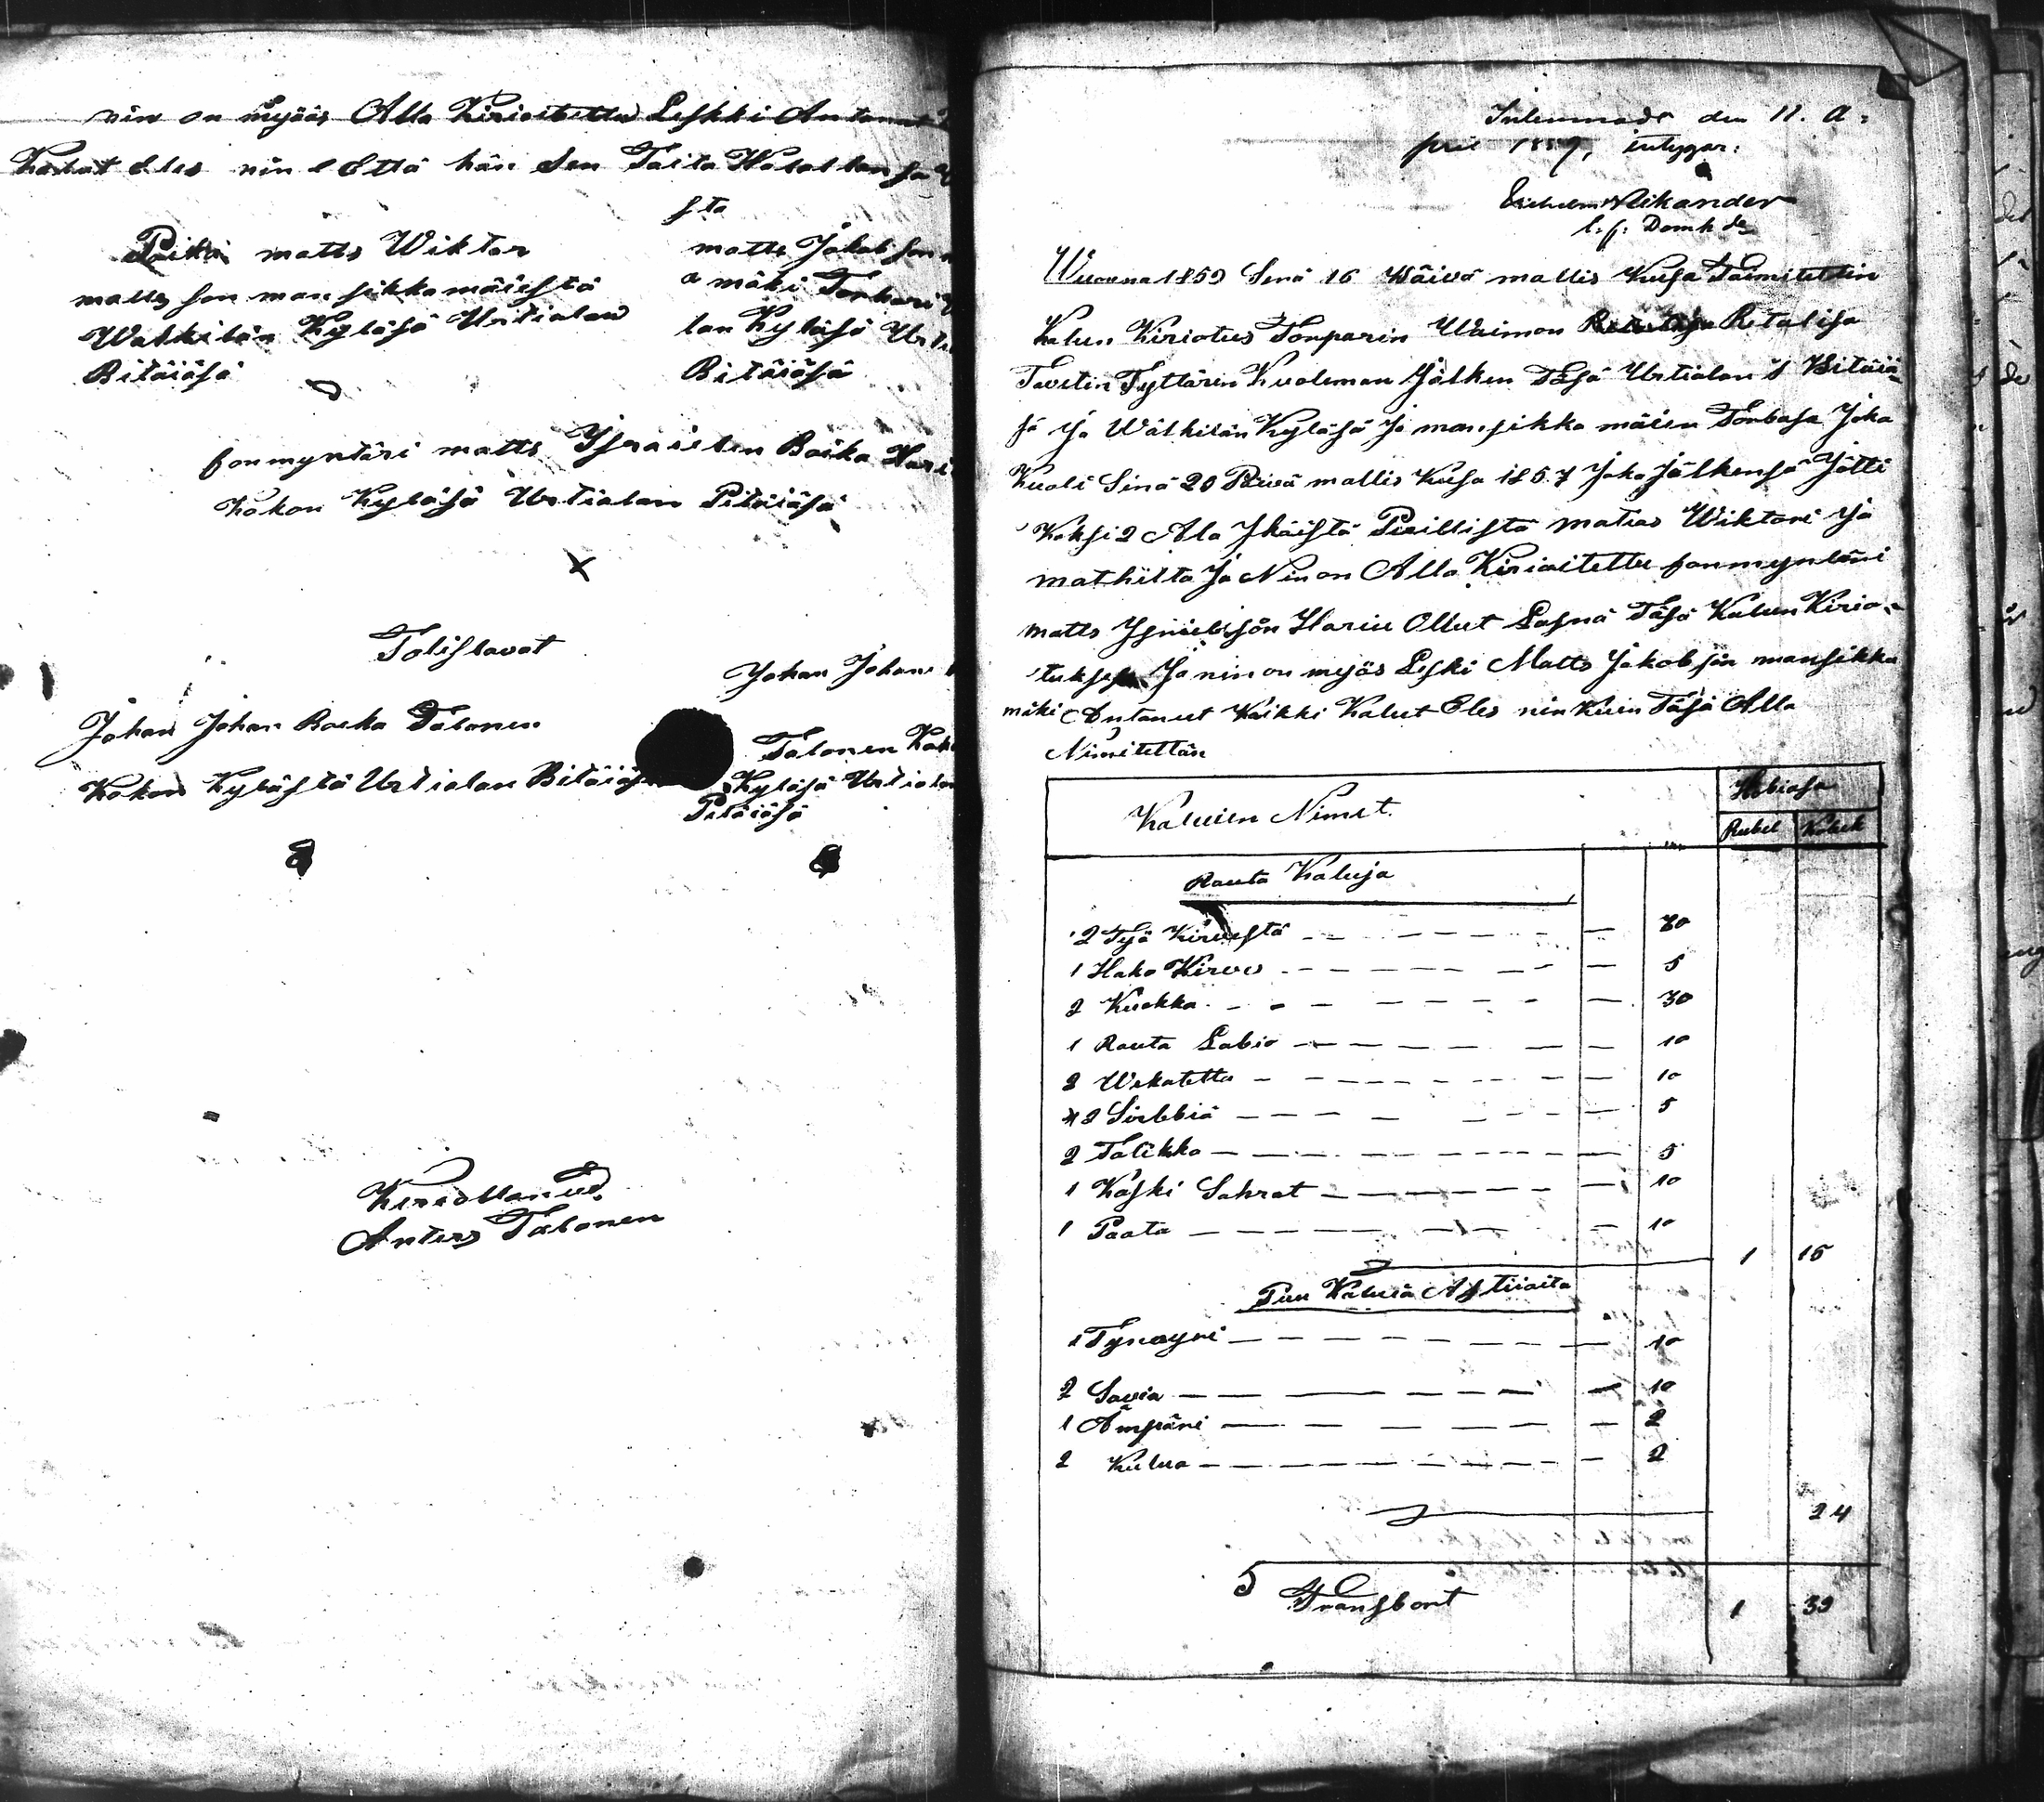 nin on myöis Alla Kirioitettu Leskki Antanut
Kalut Eles nin Että hän Sen Taita Walallansa
sta
Poika matts Wiktor
matts son mansikkamäiestä
Watkilan Kyläsä Urtialan
Bitäiäsä
matts Jakob son
a mäki Torbari
lan Kyläsä Urti
Bitäiäsä
formyntäri matts Jsraielin Boika Hari
Kokon Kyläsä Urtialan Pitäiäsä
Totistavat
Johan Johan Boika Talonen
Kokon Kylästä Urtialan Bitäiäs
Johan Johan
Talonen Kok
Kyläsä Urtialan
Pitäiäsä
Kirioittanud
Anters Talonen
Inlemnadt den 11. A=
pril 1859, intygar:
Wilhelm Wikander
l. f. Domh de
Wuonna 1859 Senä 16 Päivä mallis Kusa Toimitettin
Kalun Kiriotus Torparin Waimon Retaliisa
Tavetin Tyttären Kuoleman Jälken Täsä Urtialan Bitäiä
sä ja Watkilan Kyläsä ja mansikka mäien Torbasa Joka
Kuoli Sinä 20 Päivä mallis Kusa 1857 Joka Jälkensä Jätti
Kaksi 2 Ala Jkäistä Perillistä matias Wiktori ja
mathilta Ja Nin on Alla Kirioitettu formyntäri
matts Jsraielsson Hariu Ollut Lasnä Täsä Kalun Kirio
tuksesa Ja nin on myös Leski Matts Jakobson mansikka
mäki Antanut Kaikki Kalut Eles nin Kuin Täsä Alla
Nimitettän
Kaluien Nimet.
Hobiasa
Rubel Kobek
Rauta Kaluja
2 Työ Kirvestä 30
1 Hako Kirves 5
2 Kuokka 30
1 Rauta Labio 10
2 Wikatetta 10
2 Sirbbiä 5
2 Talikko 5
1 Kaski Sahrat 10
1 Paata 10
1 15
Puu Kaluiä Astiioita
1 Tynnyri 10
2 Saavia 10
1 Ämpäri 2
2 Kiulua 2
24
Transbort 1 39